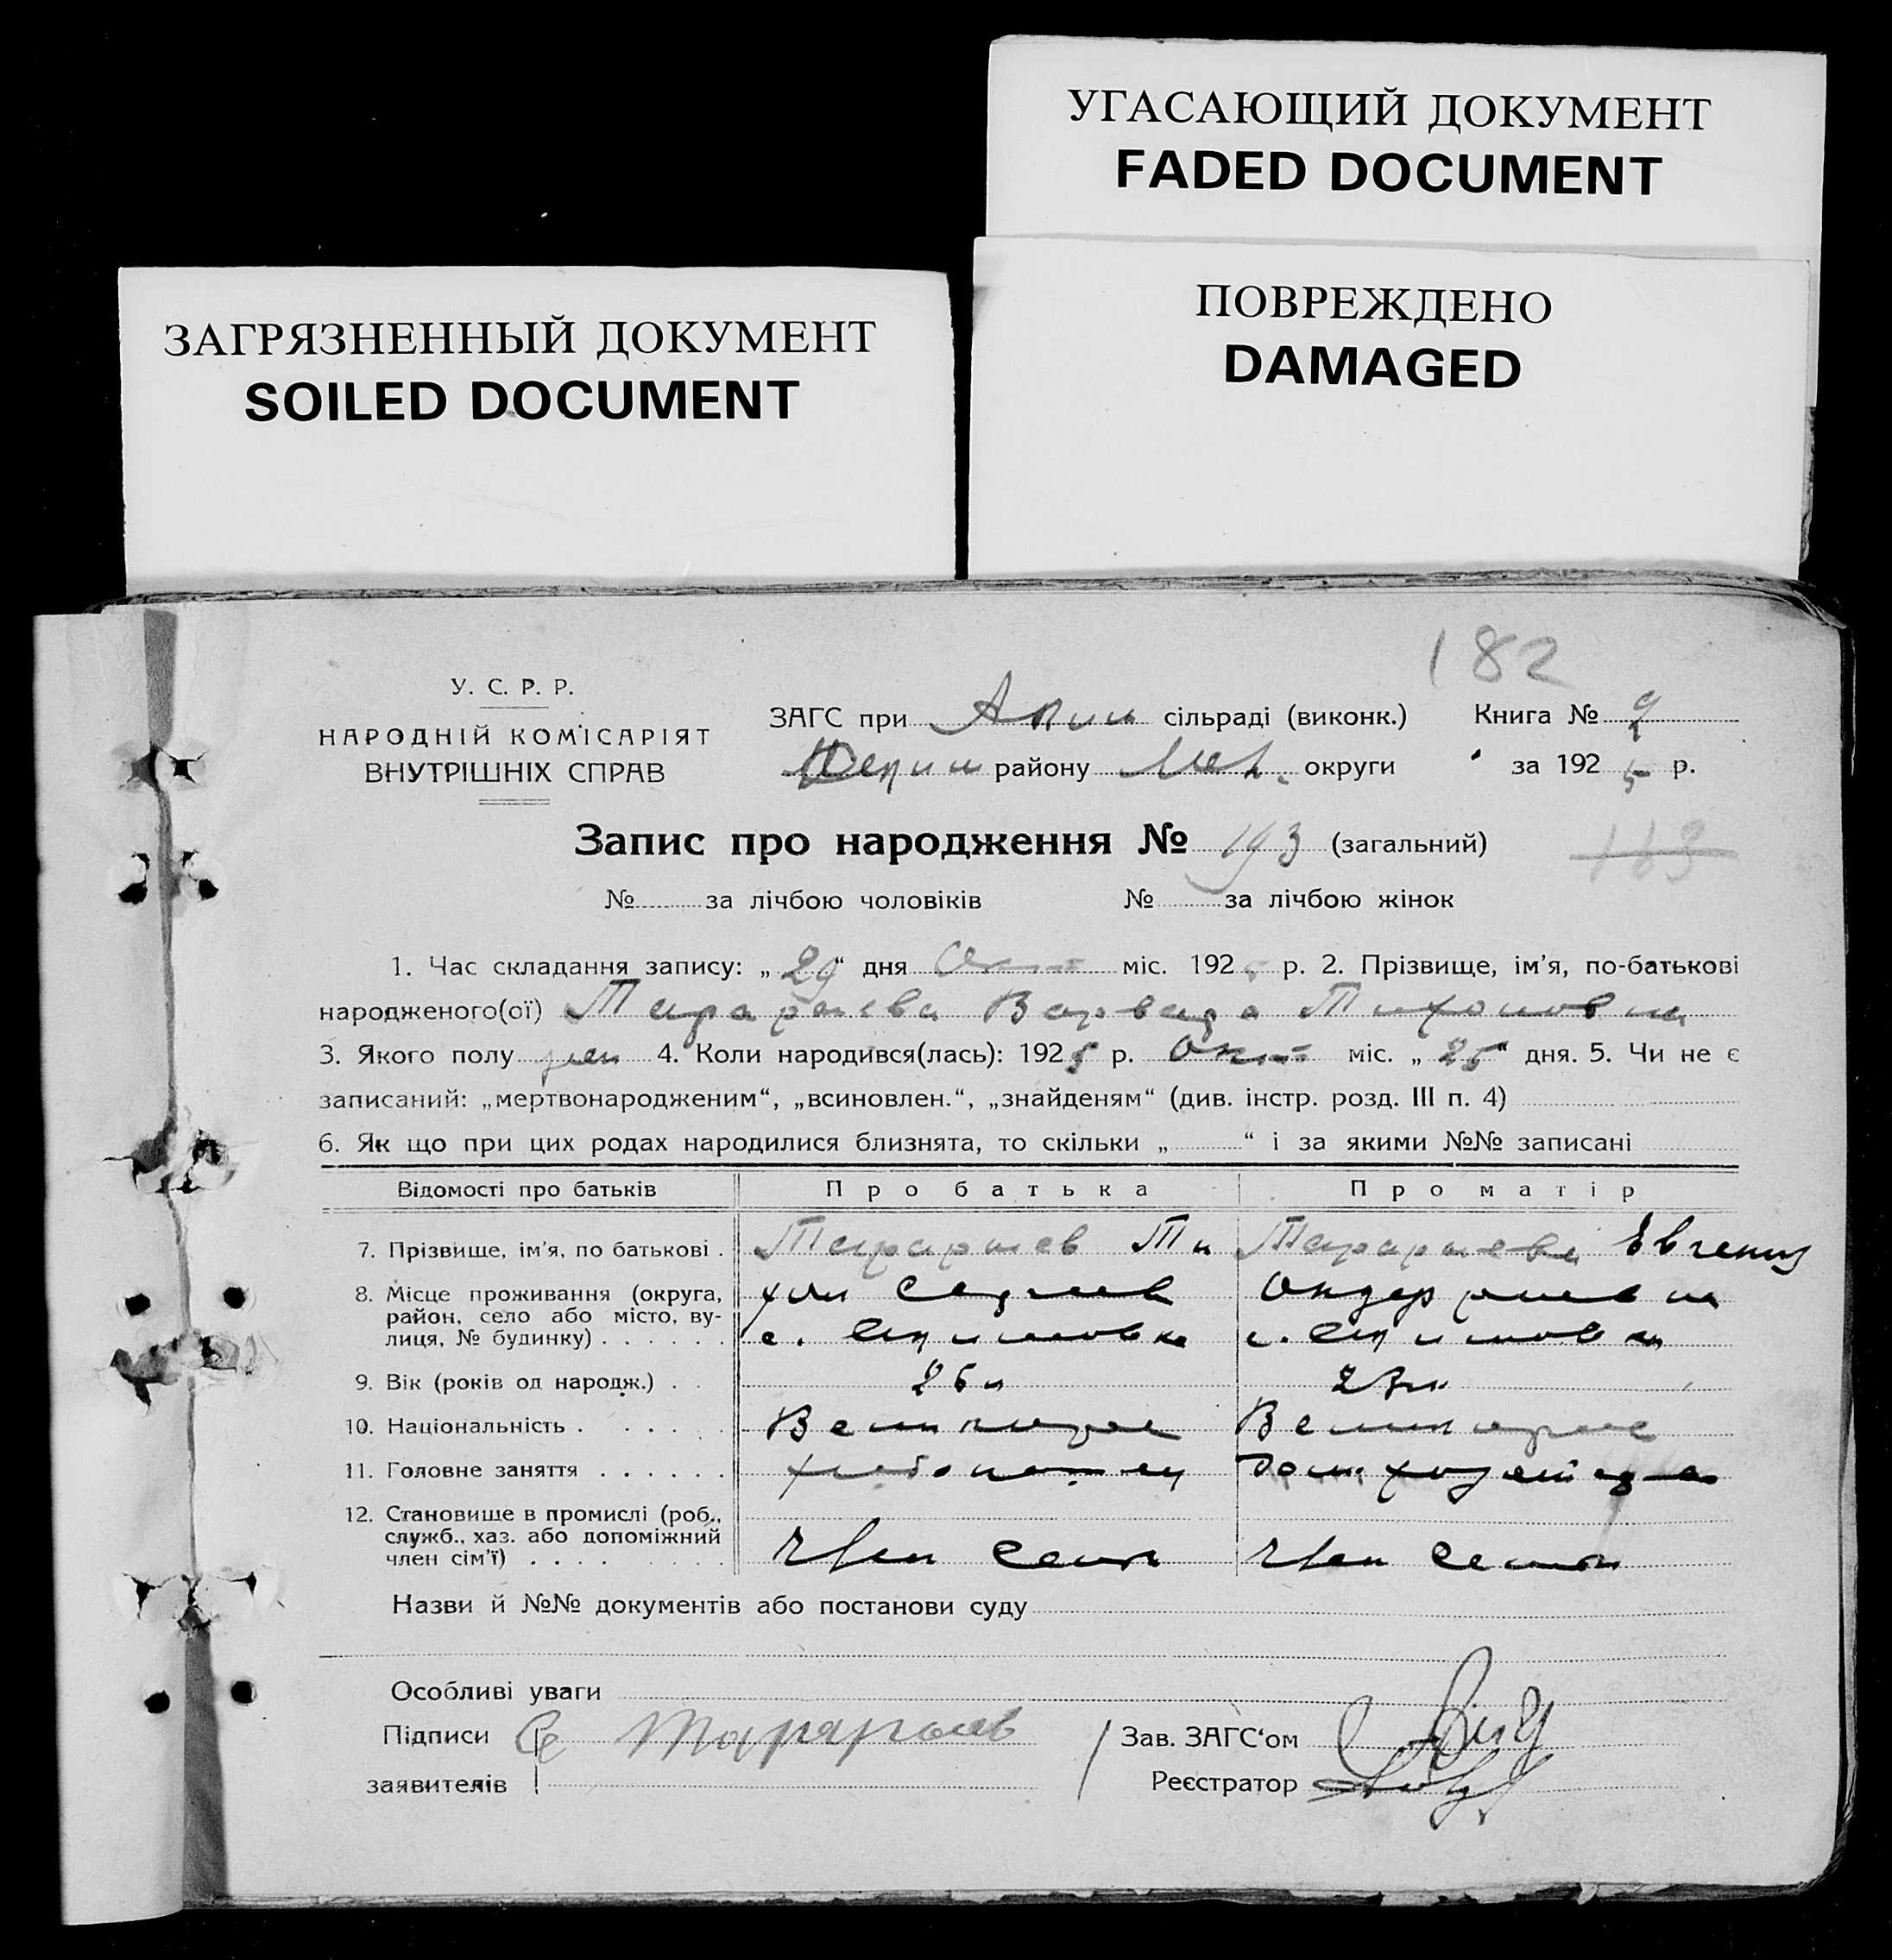 УГАСАЮЩИЙ ДОКУМЕНТ
FADED DOCUMENT
ПОВРЕЖДЕНО
DAMAGED
ЗАГРЯЗНЕННЫЙ ДОКУМЕНТ
SOILED DOCUMENT
182
У. С. Р. Р.
НАРОДНІЙ КОМІСАРІЯТ
ВНУТРІШНІХ СПРАВ
ЗАГС при Аким сільраді (виконк.) Книга № 2
району Мел. округи за 192 5 р.
Запис про народження № 193 (загальний) 113
№ за лічбою чоловіків № за лічбою жінок
1. Час складання запису: „ 29 “ дня Окт міс. 192 р. 2. Прізвище, ім'я, по-батькові
народженого(ої) Варвара Тихоновна
3. Якого полу жен 4. Коли народився(лась): 192 5 р. Окт міс. „ 25 “ дня. 5. Чи не є
записаний: „мертвонародженим“, „всиновлен.“, „знайденям“ (див. інстр. розд. III п. 4)
6. Як що при цих родах народилися близнята, то скільки „ “ і за якими №№ записані
Відомості про батьків Про батька Про матір
7. Прізвище, ім'я, по батькові . Ти Евгения
8. Місце проживання (округа, хон
район, село або місто, ву-
лиця, № будинку) . . . . . . с. Акимовка с. Акимовка
9. Вік (років од народж.) . . 26 л
10. Національність . . . . . Великорос Великорос
11. Головне заняття . . . . . . хлебопашец
12. Становище в промислі (роб.,
служб., хаз. або допоміжний
член сім'ї) . . . . Член семи Член семи
Назви й №№ документів або постанови суду
Особливі уваги
Підписи
заявителів
Зав. ЗАГС‘ом
Реєстратор